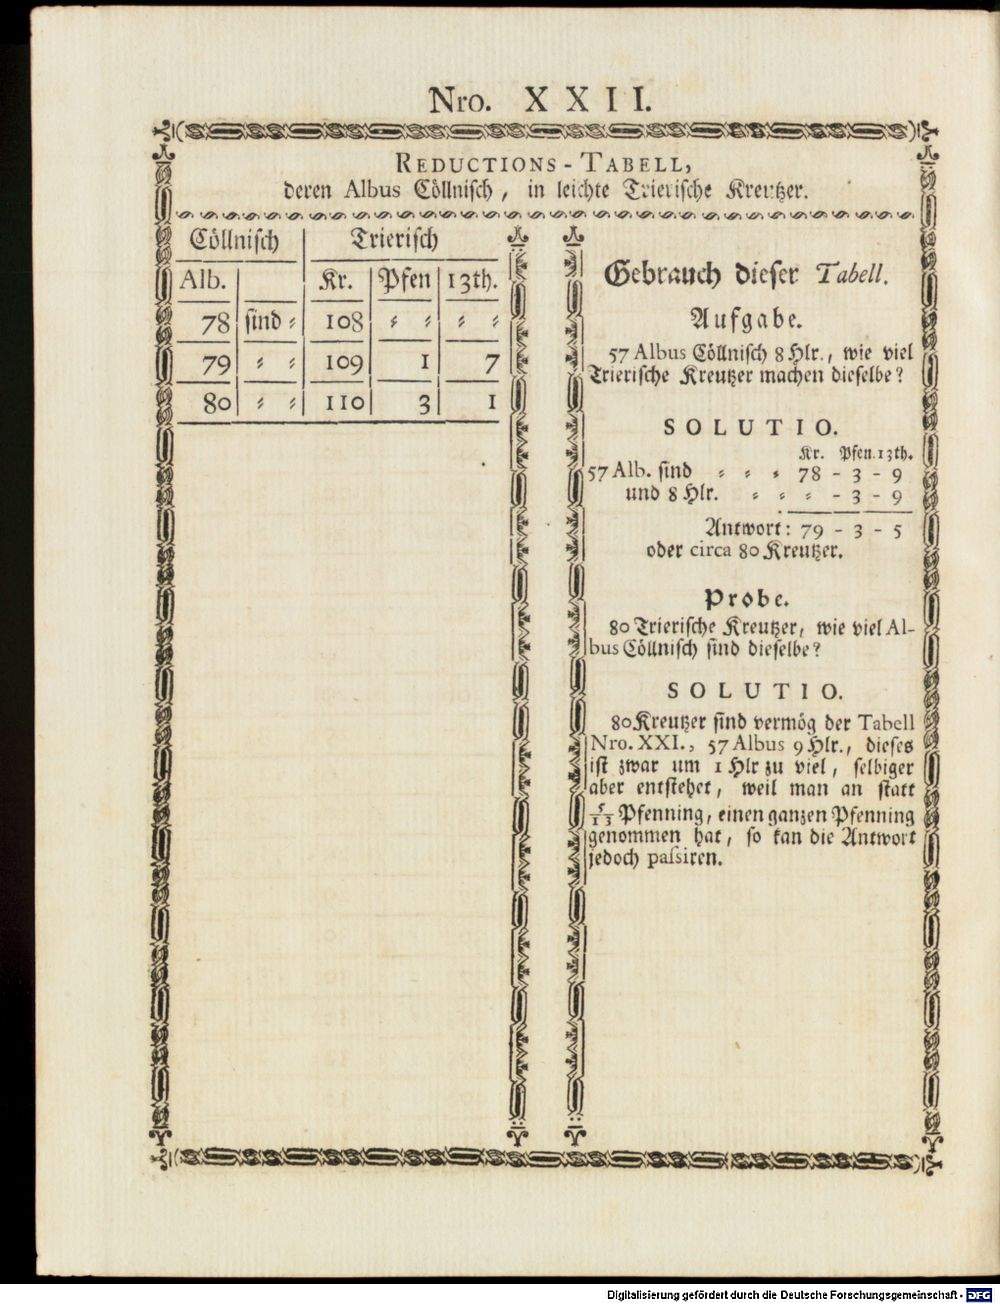 Nro. XXII.
REDUCTIONS-TABELL,
deren Albus Cöllnisch, in leichte Trierische Kreutzer.
Cöllnisch Trierisch
Alb. Kr. Pfen 13th.
78 sind ⸗ 108 ⸗ ⸗ ⸗ ⸗
79 ⸗ ⸗ 109 1 7
80 ⸗ ⸗ 110 3 1
Gebrauch dieser Tabell.
Aufgabe.
57 Albus Cöllnisch 8 Hlr., wie viel
Trierische Kreutzer machen dieselbe?
SOLUTIO.
Kr. Pfen. 13th.
57 Alb. sind ⸗ ⸗ ⸗ 78 - 3 - 9
und 8 Hlr. ⸗ ⸗ ⸗ - 3 - 9
Antwort: 79 - 3 - 5
oder circa 80 Kreutzer.
Probe.
80 Trierische Kreutzer, wie viel Al-
bus Cöllnisch sind dieselbe?
SOLUTIO.
80 Kreutzer sind vermög der Tabell
Nro. XXI., 57 Albus 9 Hlr., dieses
ist zwar um 1 Hlr zu viel, selbiger
aber entstehet, weil man an statt
5/13 Pfenning, einen ganzen Pfenning
genommen hat, so kan die Antwort
jedoch passiren.
Digitalisierung gefördert durch die Deutsche Forschungsgemeinschaft - DFG